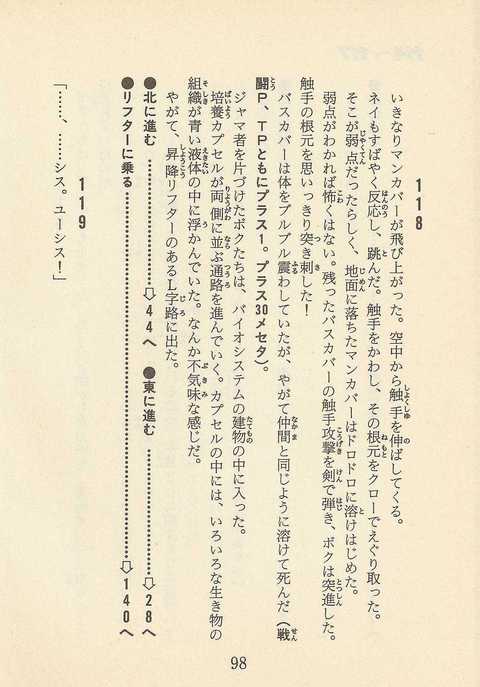 118
いきなりマンカバーが飛び上がった。空中から触手を伸ばしてくる。
ネイもすばやく反応し、跳んだ。触手をかわし、その根元をクローでえぐり取った。
そこが弱点だったらしく、地面に落ちたマンカバーはドロドロに溶けはじめた。
弱点がわかれば怖くはない。残ったバスカバーの触手攻撃を剣で弾き、ボクは突進した。
触手の根元を思いっきり突き刺した!
バスカバーは体をブルブル震わしていたが、やがて仲間と同じように溶けて死んだ(戦
闘P、TPともにプラス1。プラス30メセタ)。
ジャマ者を片づけたボクたちは、バイオシステムの建物の中に入った。
培養カプセルが両側に並ぶ通路を進んでいく。カプセルの中には、いろいろな生き物の
組織が青い液体の中に浮かんでいた。なんか不気味な感じだ。
やがて、昇降リフターのあるL字路に出た。
●北に進む⇨44へ ●東に進む⇨28へ
●リフターに乗る⇨140へ
119
「……、……シス。ユーシス!」
98